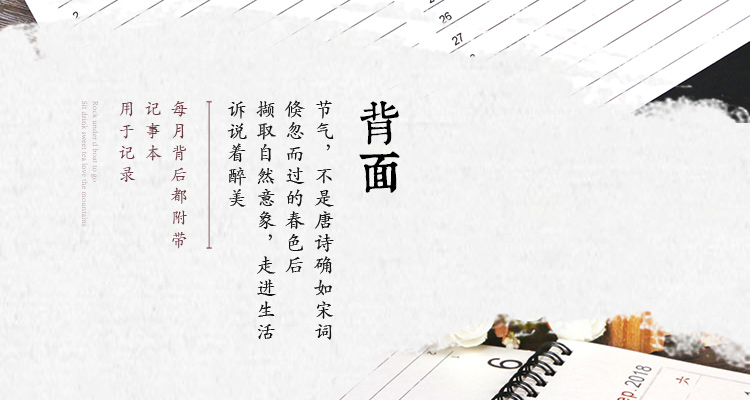 背面
节气，不是唐诗确如宋词
倏忽而过的春色后
撷取自然意象，走进生活
诉说着醉美
每月背后都附带
记事本
用于记录
Rock under d boat to go
Sit drink sweet tea love the mountains
2
26
27
6
Sep.2018
六